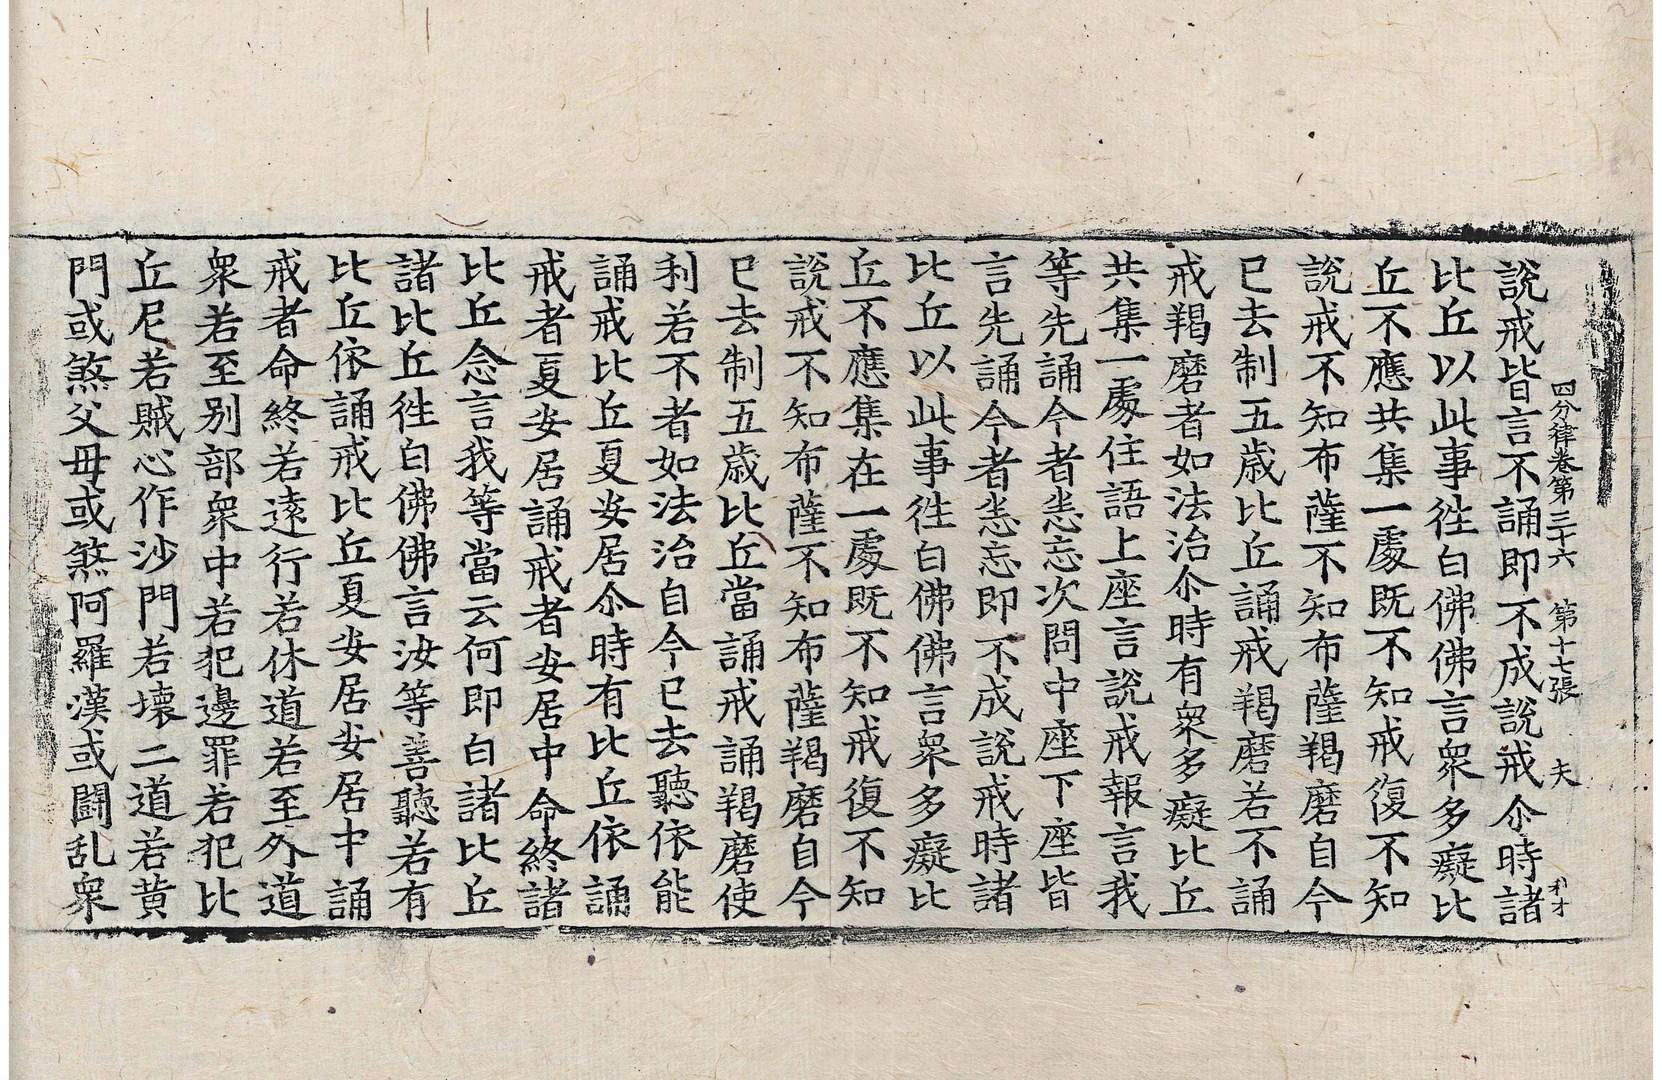 四分律卷第三十六 第十七張 夫
說戒皆言不誦即不成說戒尒時諸
比丘以此事徃白佛佛言衆多癡比
丘不應共集一處既不知戒復不知
說戒不知布薩不知布薩羯磨自今
已去制五歲比丘誦戒羯磨若不誦
戒羯磨者如法治尒時有衆多癡比丘
共集一處住語上座言說戒報言我
等先誦今者恙忘次問中座下座皆
言先誦今者恙忘即不成說戒時諸
比丘以此事徃白佛佛言衆多癡比
丘不應集在一處既不知戒復不知
說戒不知布薩不知布薩羯磨自今
已去制五歲比丘當誦戒誦羯磨使
利若不者如法治自今已去聽依能
誦戒比丘夏安居尒時有比丘依誦
戒者夏安居誦戒者安居中命終諸
比丘念言我等當云何即白諸比丘
諸比丘徃白佛佛言汝等善聽若有
比丘依誦戒比丘夏安居安居中誦
戒者命終若遠行若休道若至外道
衆若至別部衆中若犯邊罪若犯比
丘尼若賊心作沙門若壞二道若黃
門或煞父母或煞阿羅漢或鬪乱衆